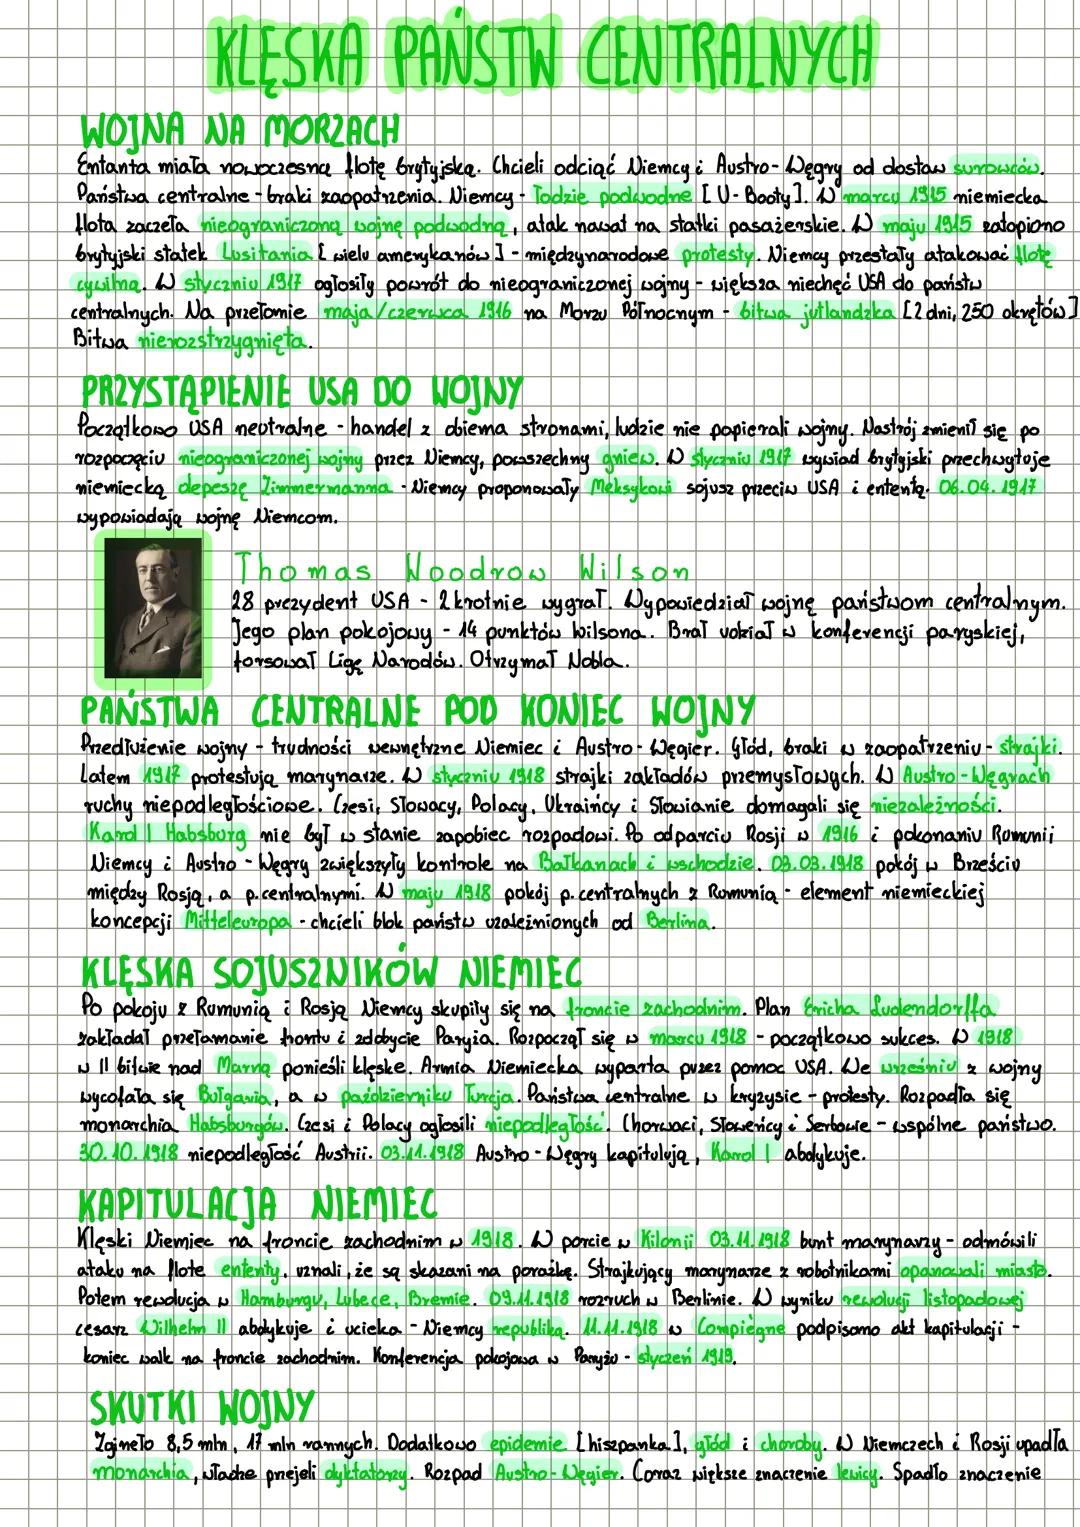 KLĘSKA PAŃSTW CENTRALNYCH
WOJNA NA MORZACH
Ententa miała nowoczesną flotę brytyjską. Chcieli odciąć Niemcy i Austro-Węgry od dostaw surowców.
Państwa centralne - braki zaopatrzenia. Niemcy - łodzie podwodne [U-Booty]. W marcu 1915 niemiecka
flota zaczęła nieograniczoną wojnę podwodną, atak nawat na statki pasażerskie. W maju 1915 zatopiono
brytyjski statek Lusitania [wielu amerykanów] - międzynarodowe protesty. Niemcy przestały atakować flotę
cywilną. W styczniu 1917 ogłosiły powrót do nieograniczonej wojny - większa niechęć USA do państw
centralnych. Na przełomie maja/czerwca 1916 na Morzu Północnym - bitwa jutlandzka [2 dni, 250 okrętów]
Bitwa nierozstrzygnięta.
PRZYSTĄPIENIE USA DO WOJNY
Początkowo USA neutralne - handel z obiema stronami, ludzie nie popierali wojny. Nastrój zmienił się po
rozpoczęciu nieograniczonej wojny przez Niemcy, powszechny gniew. W styczniu 1917 wywiad brytyjski przechwytuje
niemiecką depeszę Zimmermanna - Niemcy proponowały Meksykowi sojusz przeciw USA i ententą. 06.04.1917
wypowiadają wojnę Niemcom.
Thomas Woodrow Wilson
28 prezydent USA - 2 krotnie wygrał. Wypowiedział wojnę państwom centralnym.
Jego plan pokojowy - 14 punktów Wilsona. Brał udział w konferencji paryskiej,
forsował Ligę Narodów. Otrzymał Nobla.
PAŃSTWA CENTRALNE POD KONIEC WOJNY
Przedłużenie wojny - trudności wewnętrzne Niemiec i Austro-Węgier. Głód, braki w zaopatrzeniu - strajki.
Latem 1917 protestują marynarze. W styczniu 1918 strajki zakładów przemysłowych. W Austro-Węgrach
ruchy niepodległościowe. Czesi, Słowacy, Polacy, Ukraińcy i Słowianie domagali się niezależności.
Karol I Habsburg nie był w stanie zapobiec rozpadowi. Po odparciu Rosji w 1916 i pokonaniu Rumunii
Niemcy i Austro-Węgry zwiększyły kontrole na Bałkanach i wschodzie. 03.03.1918 pokój w Brześciu
między Rosją, a p. centralnymi. W maju 1918 pokój p. centralnych z Rumunią - element niemieckiej
koncepcji Mitteleuropa - chcieli blok państw uzależnionych od Berlina.
KLĘSKA SOJUSZNIKÓW NIEMIEC
Po pokoju z Rumunią i Rosją Niemcy skupiły się na froncie zachodnim. Plan Ericha Ludendorffa
zakładał przełamanie frontu i zdobycie Paryża. Rozpoczął się w marcu 1918 - początkowo sukces. W 1918
w II bitwie nad Marną ponieśli klęske. Armia Niemiecka wyparta przez pomoc USA. We wrześniu z wojny
wycofała się Bułgaria, a w październiku Turcja. Państwa centralne w kryzysie - protesty. Rozpadła się
monarchia Habsburgów. Czesi i Polacy ogłosili niepodległość. Chorwaci, Słoweńcy i Serbowie - wspólne państwo.
30.10.1918 niepodległość Austrii. 03.11.1918 Austro-Węgry kapitulują, Karol I abdykuje.
KAPITULACJA NIEMIEC
Klęski Niemiec na froncie zachodnim w 1918. W porcie w Kilonii 03.11.1918 bunt marynarzy - odmówili
ataku na flote ententy, uznali, że są skazani na porażkę. Strajkujący marynarze z robotnikami opanowali miasto.
Potem rewolucja w Hamburgu, Lubece, Bremie. 09.11.1918 rozruch w Berlinie. W wyniku rewolucji listopadowej
cesarz Wilhelm II abdykuje i ucieka - Niemcy republiką. 11.11.1918 w Compiègne podpisano akt kapitulacji -
koniec walk na froncie zachodnim. Konferencja pokojowa w Paryżu - styczeń 1919.
SKUTKI WOJNY
Zgineło 8,5 mln, 17 mln rannych. Dodatkowo epidemie [hiszpanka], głód i choroby. W Niemczech i Rosji upadła
monarchia, władze przejeli dyktatorzy. Rozpad Austro-Węgier. Coraz większe znaczenie lewicy. Spadło znaczenie